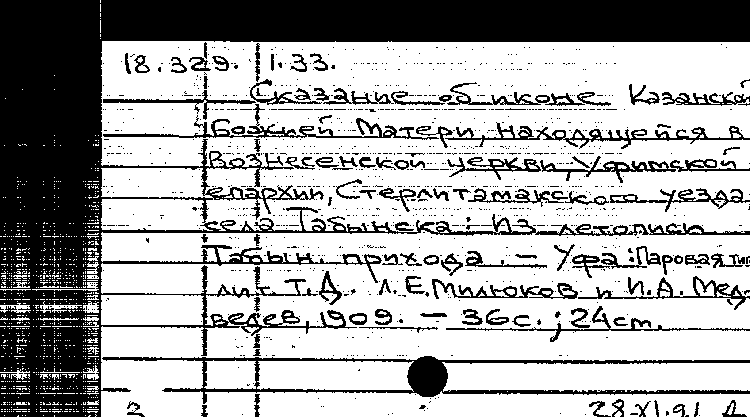 18.329. 1.33.
Сказание об иконе Казанской
Божией Матери, находящейся в
Вознесенской церкви, Уфимской
епархии, Стерлитамакского уезда,
села Табынска: Из летописи
Табын. прихода. - Уфа: Паровая тип.
лит. Т.Д. Л.Е. Милюков и И.А. Мед-
ведев, 1909. - 36с.; 24см.
3 28.XI.91